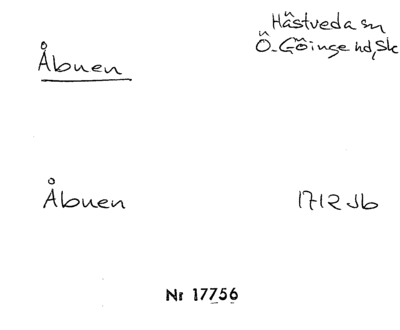 Hästveda sn
Åbnen
Ö. Göinge hd, Sk
Åbnen
1712 Jb
Nr 17756